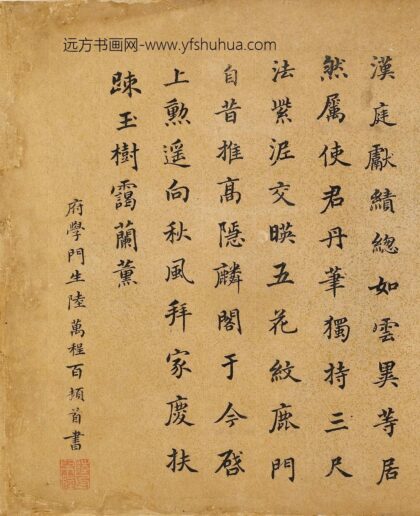 远方书画网-www.yfshuhua.com
漢庭獻績總如雲異等居
然屬使君丹筆獨持三尺
法紫泥交暎五花紋鹿門
自昔推高隱麟閣于今啓
上勲遥向秋風拜家慶扶
踈玉樹靄蘭薰
府學門生陸萬程百頓首書